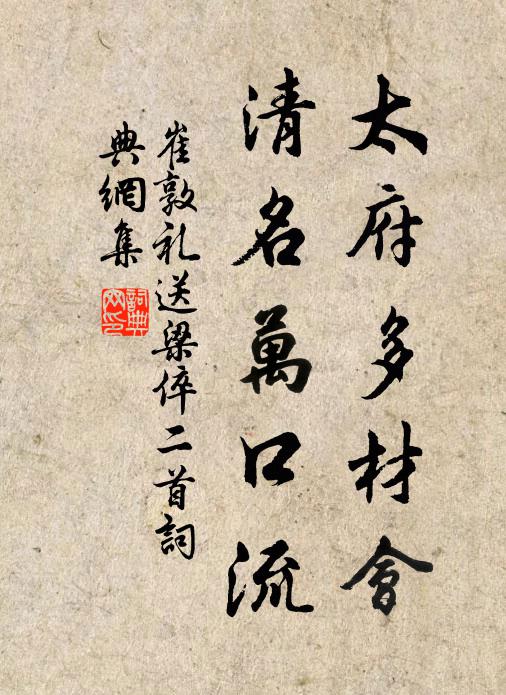 太府多材會
清名萬口流
崔敦礼送梁倅二首詞
典網集
詞典網印